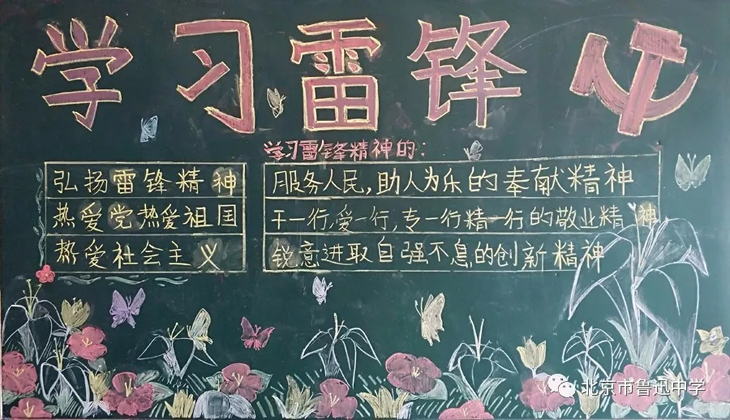 学习雷锋
学习雷锋精神的:
弘扬雷锋精神
热爱党热爱祖国
热爱社会主义
服务人民,助人为乐的奉献精神
干一行,爱一行,专一行精一行的敬业精神
锐意进取自强不息的创新精神
北京市鲁迅中学